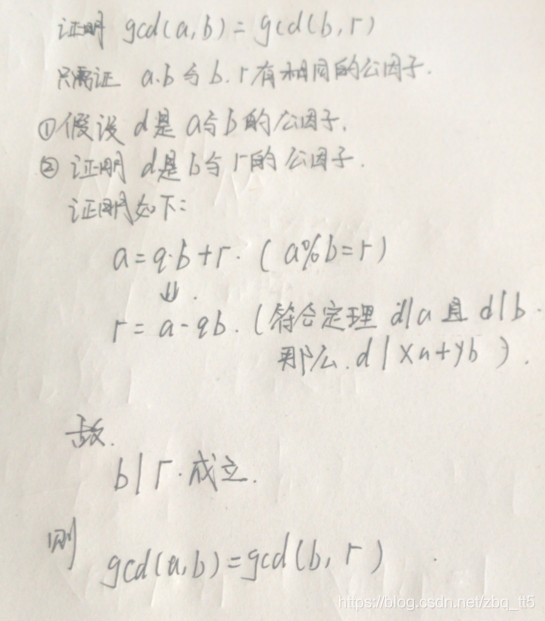 证明 gcd(a,b)=gcd(b,r)
只需证 a.b与b.r有相同的公因子.
①假设 d是a与b的公因子.
② 证明 d是b与r的公因子.
证明如下:
a=q·b+r. (a%b=r)
⇓.
r=a-qb. (符合定理 d|a 且 d|b.
那么.d|xa+yb).
故.
b|r.成立.
则
gcd(a,b)=gcd(b,r)
https://blog.csdn.net/zbq_tt5